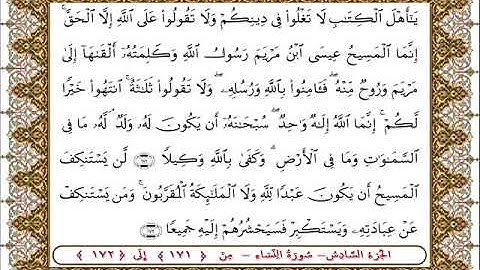 يَـٰٓأَهْلَ ٱلْكِتَـٰبِ لَا تَغْلُوا۟ فِى دِينِكُمْ وَلَا تَقُولُوا۟ عَلَى ٱللَّهِ إِلَّا ٱلْحَقَّ ۚ
إِنَّمَا ٱلْمَسِيحُ عِيسَى ٱبْنُ مَرْيَمَ رَسُولُ ٱللَّهِ وَكَلِمَتُهُۥٓ أَلْقَىٰهَآ إِلَىٰ
مَرْيَمَ وَرُوحٌ مِّنْهُ ۖ فَـَٔامِنُوا۟ بِٱللَّهِ وَرُسُلِهِۦ ۖ وَلَا تَقُولُوا۟ ثَلَـٰثَةٌ ۚ ٱنتَهُوا۟ خَيْرًا
لَّكُمْ ۚ إِنَّمَا ٱللَّهُ إِلَـٰهٌ وَٰحِدٌ ۖ سُبْحَـٰنَهُۥٓ أَن يَكُونَ لَهُۥ وَلَدٌ ۘ لَّهُۥ مَا فِى
ٱلسَّمَـٰوَٰتِ وَمَا فِى ٱلْأَرْضِ ۗ وَكَفَىٰ بِٱللَّهِ وَكِيلًا ١٧١ لَّن يَسْتَنكِفَ
ٱلْمَسِيحُ أَن يَكُونَ عَبْدًا لِّلَّهِ وَلَا ٱلْمَلَـٰٓئِكَةُ ٱلْمُقَرَّبُونَ ۚ وَمَن يَسْتَنكِفْ
عَنْ عِبَادَتِهِۦ وَيَسْتَكْبِرْ فَسَيَحْشُرُهُمْ إِلَيْهِ جَمِيعًا ١٧٢
الجزء السادس - سورة النساء - من ﴿١٧١﴾ إلى ﴿١٧٢﴾